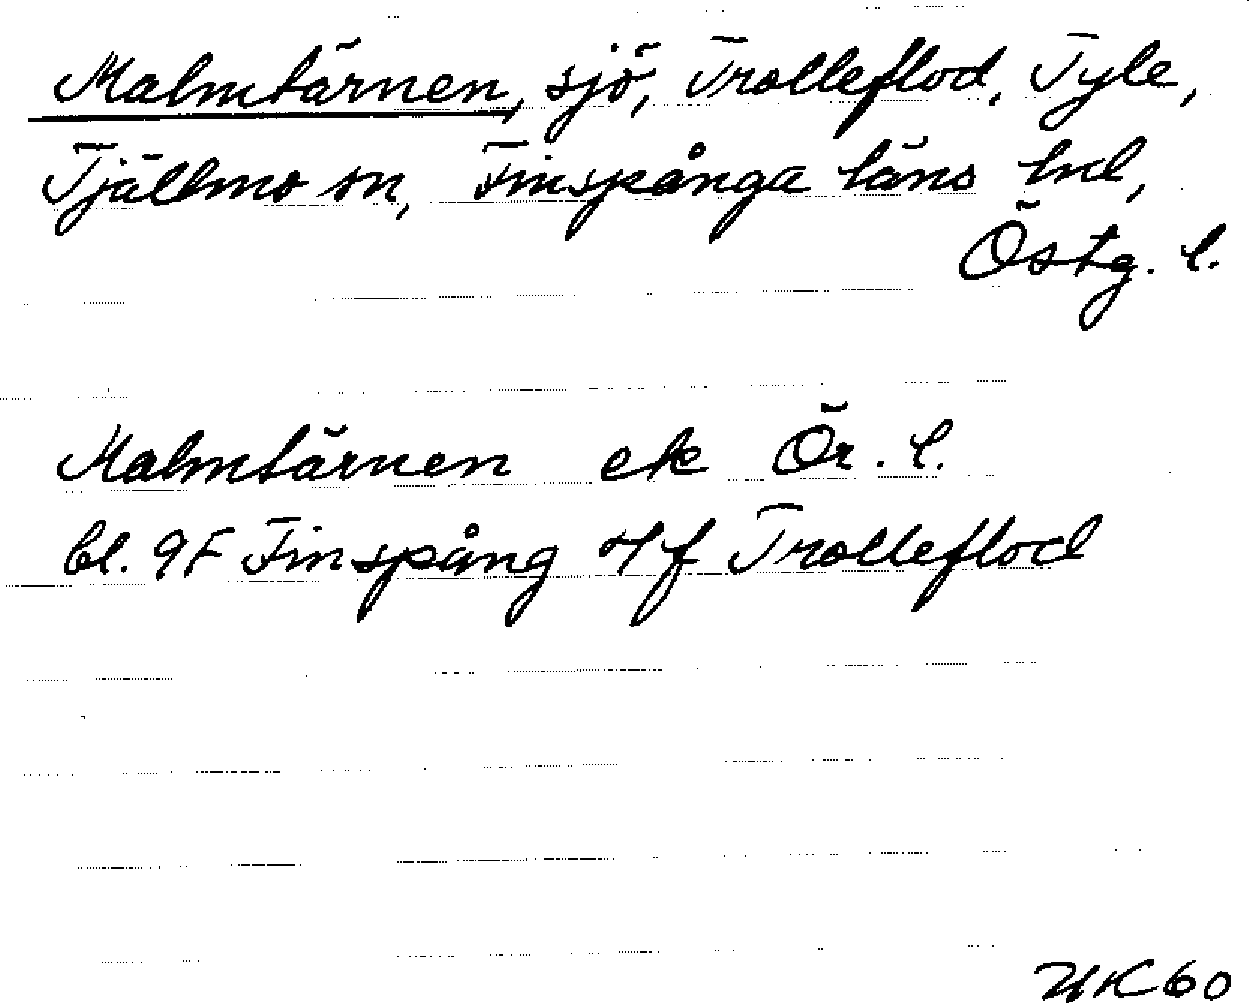 Malmtärnen, sjö, Trolleflod, Tyle,
Tjällmo sn, Finspånga läns hd,
Östg. l.
Malmtärnen ek Ör. l.
bl. 9F Finspång o/f Trolleflod
HK 60